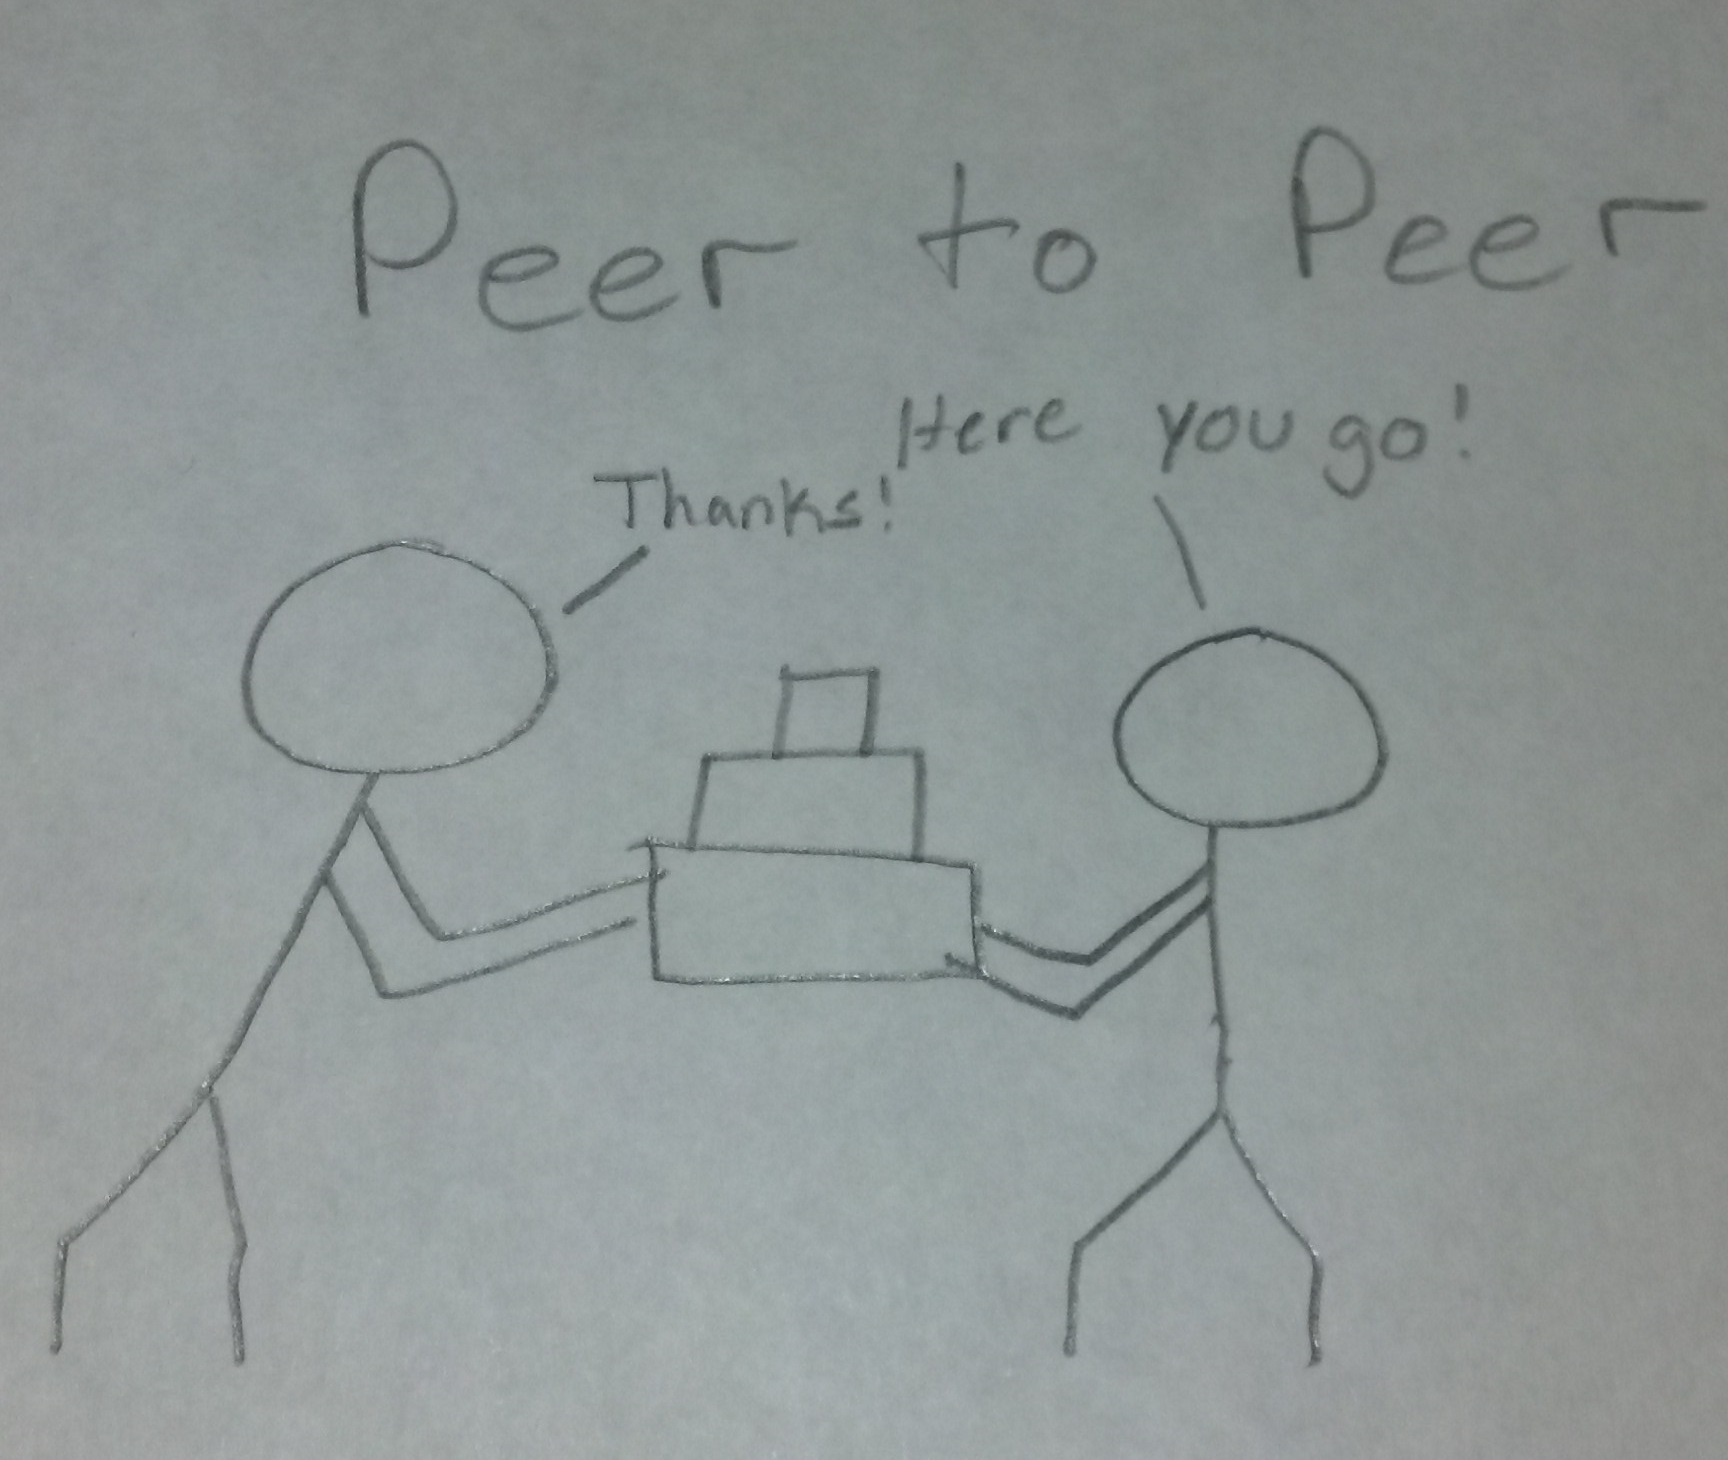 Peer to Peer
Here you go!
Thanks!